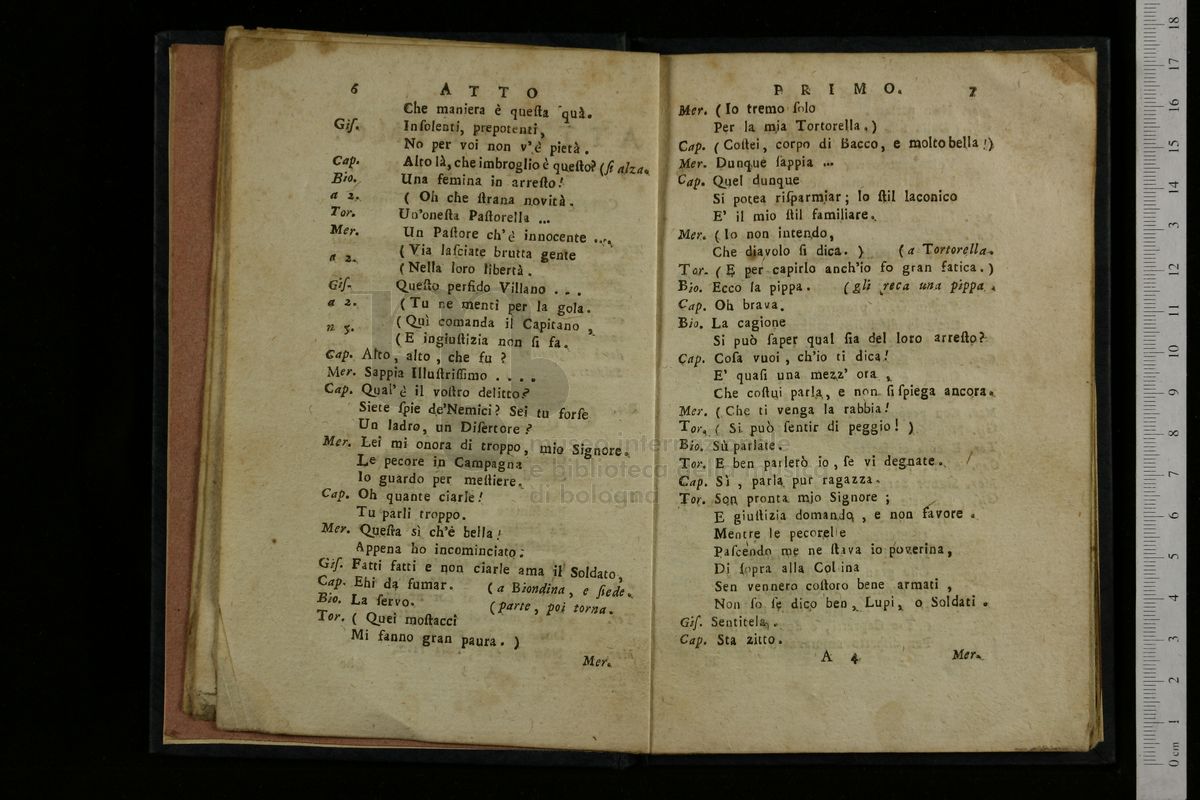 6 ATTO
Che maniera è queſta quà.
Giſ. Inſolenti, prepotenti,
No per voi non v'è pietà.
Cap. Alto là, che imbroglio è queſto? (ſi alza.
Bio. Una femina in arreſto!
a 2. ( Oh che ſtrana novità.
Tor. Un'oneſta Paſtorella ...
Mer. Un Paſtore ch'è innocente ....
a 2. (Via laſciate brutta gente
(Nella loro libertà.
Giſ. Queſto perfido Villano . . .
a 2. (Tu ne menti per la gola.
n 5. (Quì comanda il Capitano,
(E ingiuſtizia non ſi fa.
Cap. Alto, alto, che fu ?
Mer. Sappia Illuſtriſſimo . . . .
Cap. Qual'è il voſtro delitto?
Siete ſpie de'Nemici? Sei tu forſe
Un ladro, un Diſertore?
Mer. Lei mi onora di troppo, mio Signore.
Le pecore in Campagna
Io guardo per meſtiere.
Cap. Oh quante ciarle!
Tu parli troppo.
Mer. Queſta sì ch'è bella!
Appena ho incominciato.
Giſ. Fatti fatti e non ciarle ama il Soldato,
Cap. Ehi da fumar. (a Biondina, e ſiede.
Bio. La ſervo. (parte, poi torna.
Tor. ( Quei moſtacci
Mi fanno gran paura. )
Mer.
PRIMO. 7
Mer. (Io tremo ſolo
Per la mia Tortorella.)
Cap. (Coſtei, corpo di Bacco, e molto bella!)
Mer. Dunque ſappia ...
Cap. Quel dunque
Si potea riſparmiar; lo ſtil laconico
E' il mio ſtil familiare.
Mer. (Io non intendo,
Che diavolo ſi dica. ) (a Tortorella.
Tor. (E per capirlo anch'io fo gran fatica.)
Bio. Ecco la pippa. (gli reca una pippa.
Cap. Oh brava.
Bio. La cagione
Si può ſaper qual ſia del loro arreſto?
Cap. Coſa vuoi, ch'io ti dica!
E' quaſi una mezz' ora,
Che coſtui parla, e non ſi ſpiega ancora.
Mer. (Che ti venga la rabbia!
Tor. ( Si può ſentir di peggio! )
Bio. Sù parlate.
Tor. E ben parlerò io, ſe vi degnate.
Cap. Sì, parla pur ragazza.
Tor. Son pronta mio Signore;
E giuſtizia domando, e non favore.
Mentre le pecorelle
Paſcendo me ne ſtava io poverina,
Di ſopra alla Collina
Sen vennero coſtoro bene armati,
Non ſo ſe dico ben, Lupi, o Soldati.
Giſ. Sentitela.
Cap. Sta zitto.
A 4 Mer.
museo internazionale
e biblioteca della musica
di bologna
0 cm 1 2 3 4 5 6 7 8 9 10 11 12 13 14 15 16 17 18